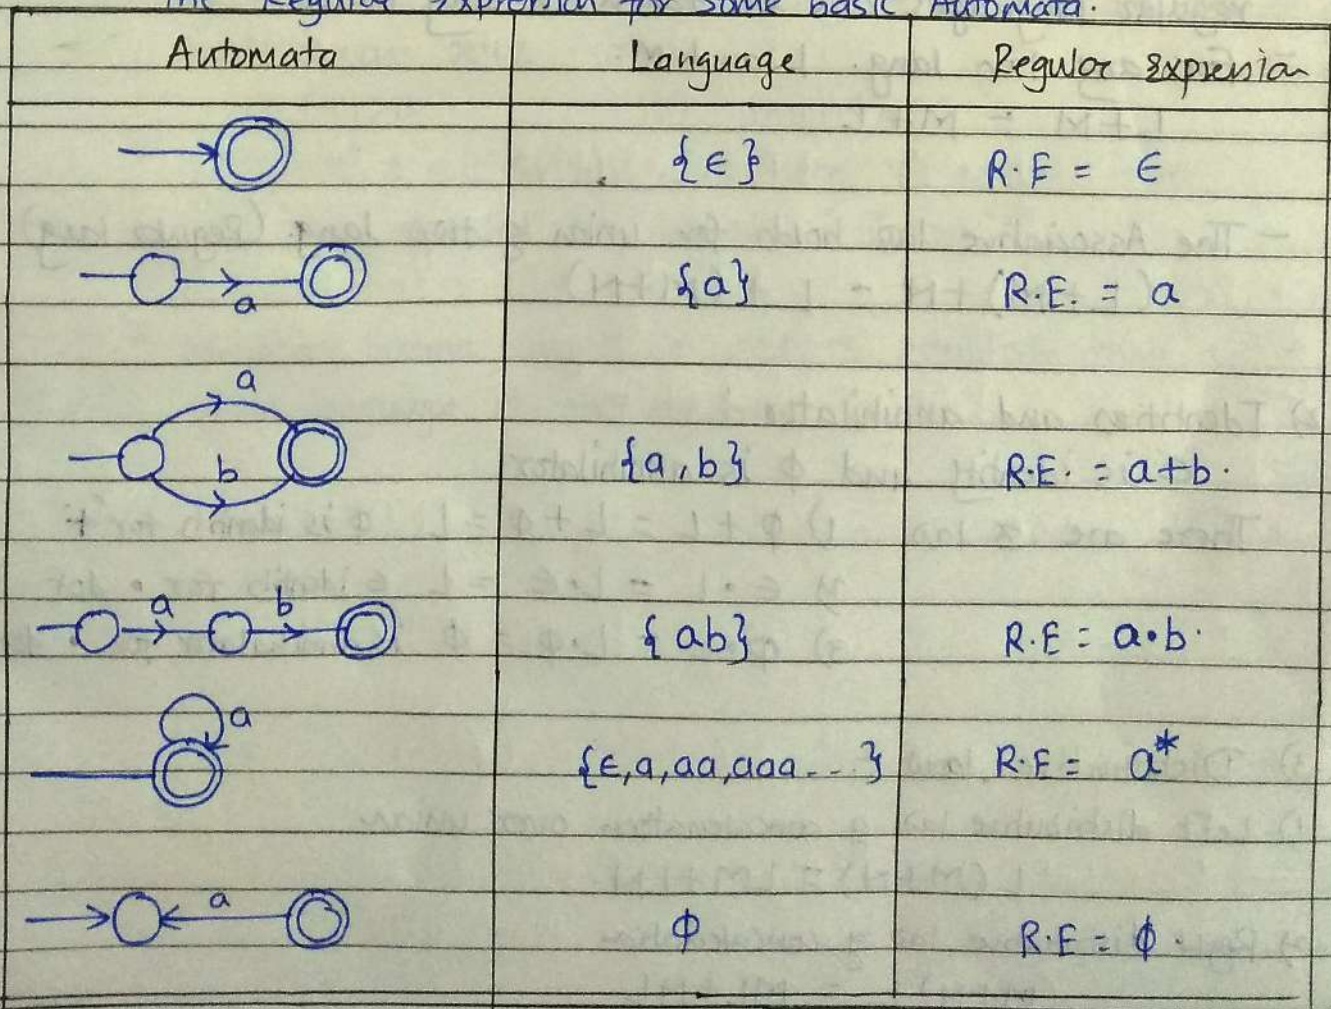 The Regular Expression for some basic Automata.
Automata Language Regular Expression
{ϵ} R.E = ϵ
a {a} R.E. = a
a
b {a,b} R.E. = a+b.
a b {ab} R.E = a•b.
a {ϵ,a,aa,aaa...} R.E = a*
a ϕ R.E = ϕ.